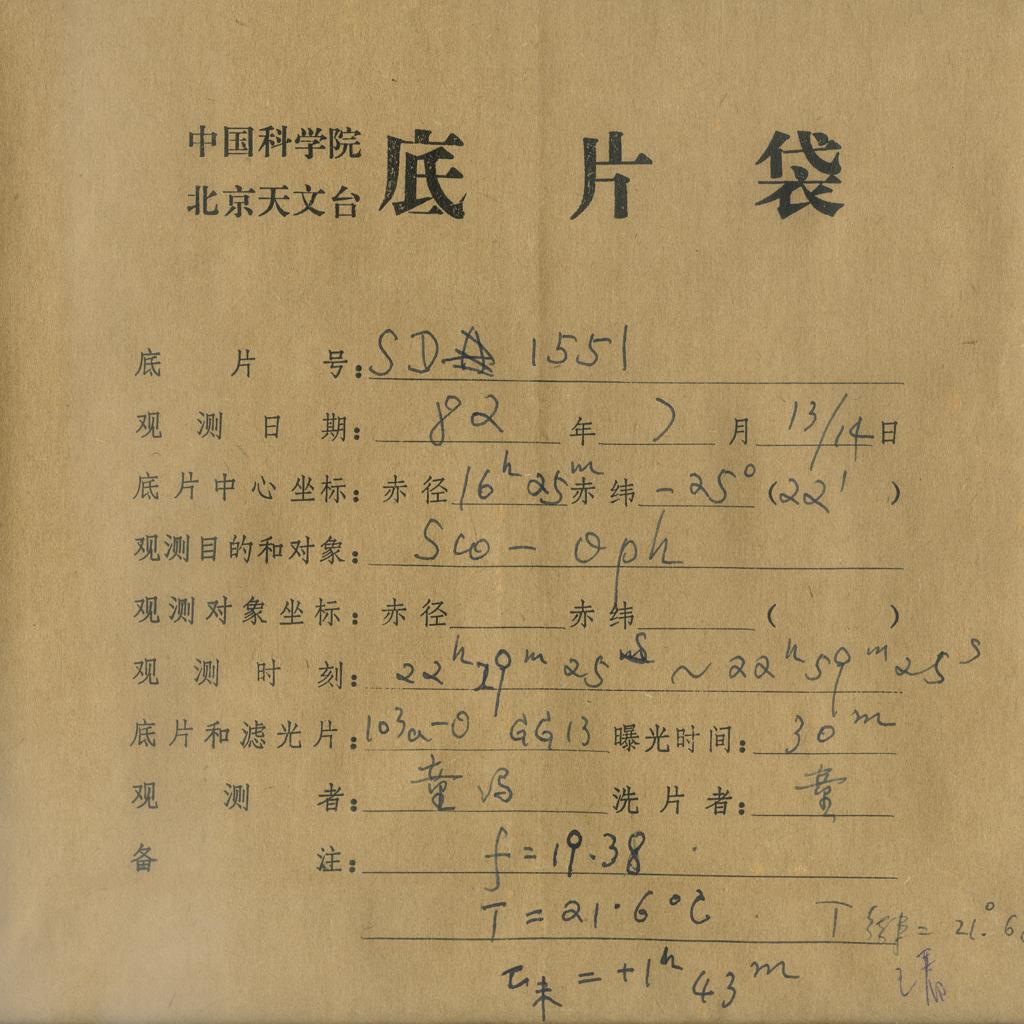 中国科学院
北京天文台
底片袋
底片号: SD 1551
观测日期: 82 年 7 月 13/14 日
底片中心坐标: 赤径 16h 25m 赤纬 -25° (22')
观测目的和对象: Sco - Oph
观测对象坐标: 赤径 赤纬 ( )
观测时刻: 22h 29m 25s ~ 22h 59m 25s
底片和滤光片: 103a-O GG13 曝光时间: 30m
观测者: 童 冯 洗片者: 童
备注: f = 19.38
T = 21.6°C T = 21.°6
末 = +1h 43m